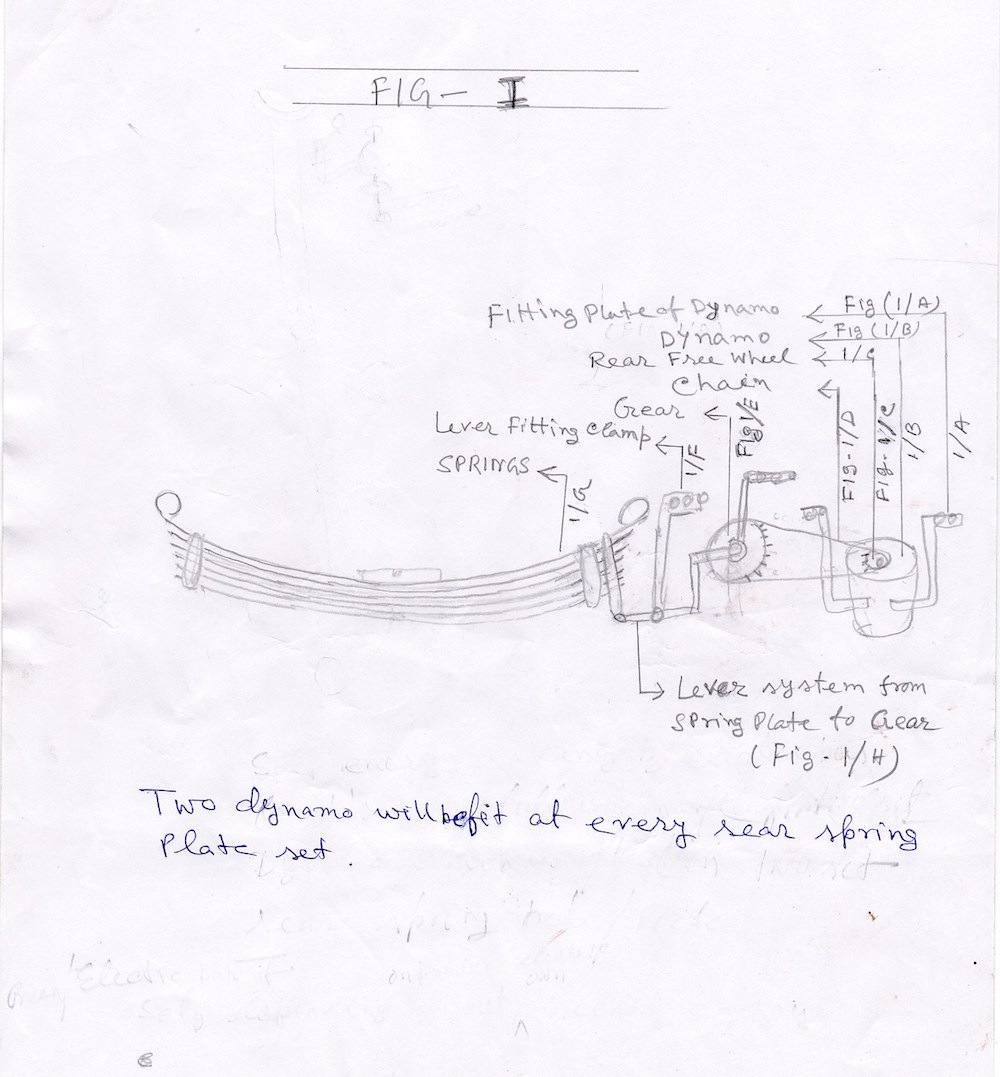 FIG- I
Fitting Plate of Dynamo Fig (1/A)
Dynamo Fig (1/B)
Rear Free Wheel 1/C
Chain
Gear
Lever Fitting Clamp
SPRINGS
1/G
1/F
Fig 1/E
Fig-1/D
Fig-1/C
1/B
1/A
Lever system from
Spring Plate to Gear
(Fig-1/H)
Two dynamo will be fit at every rear spring
Plate set.